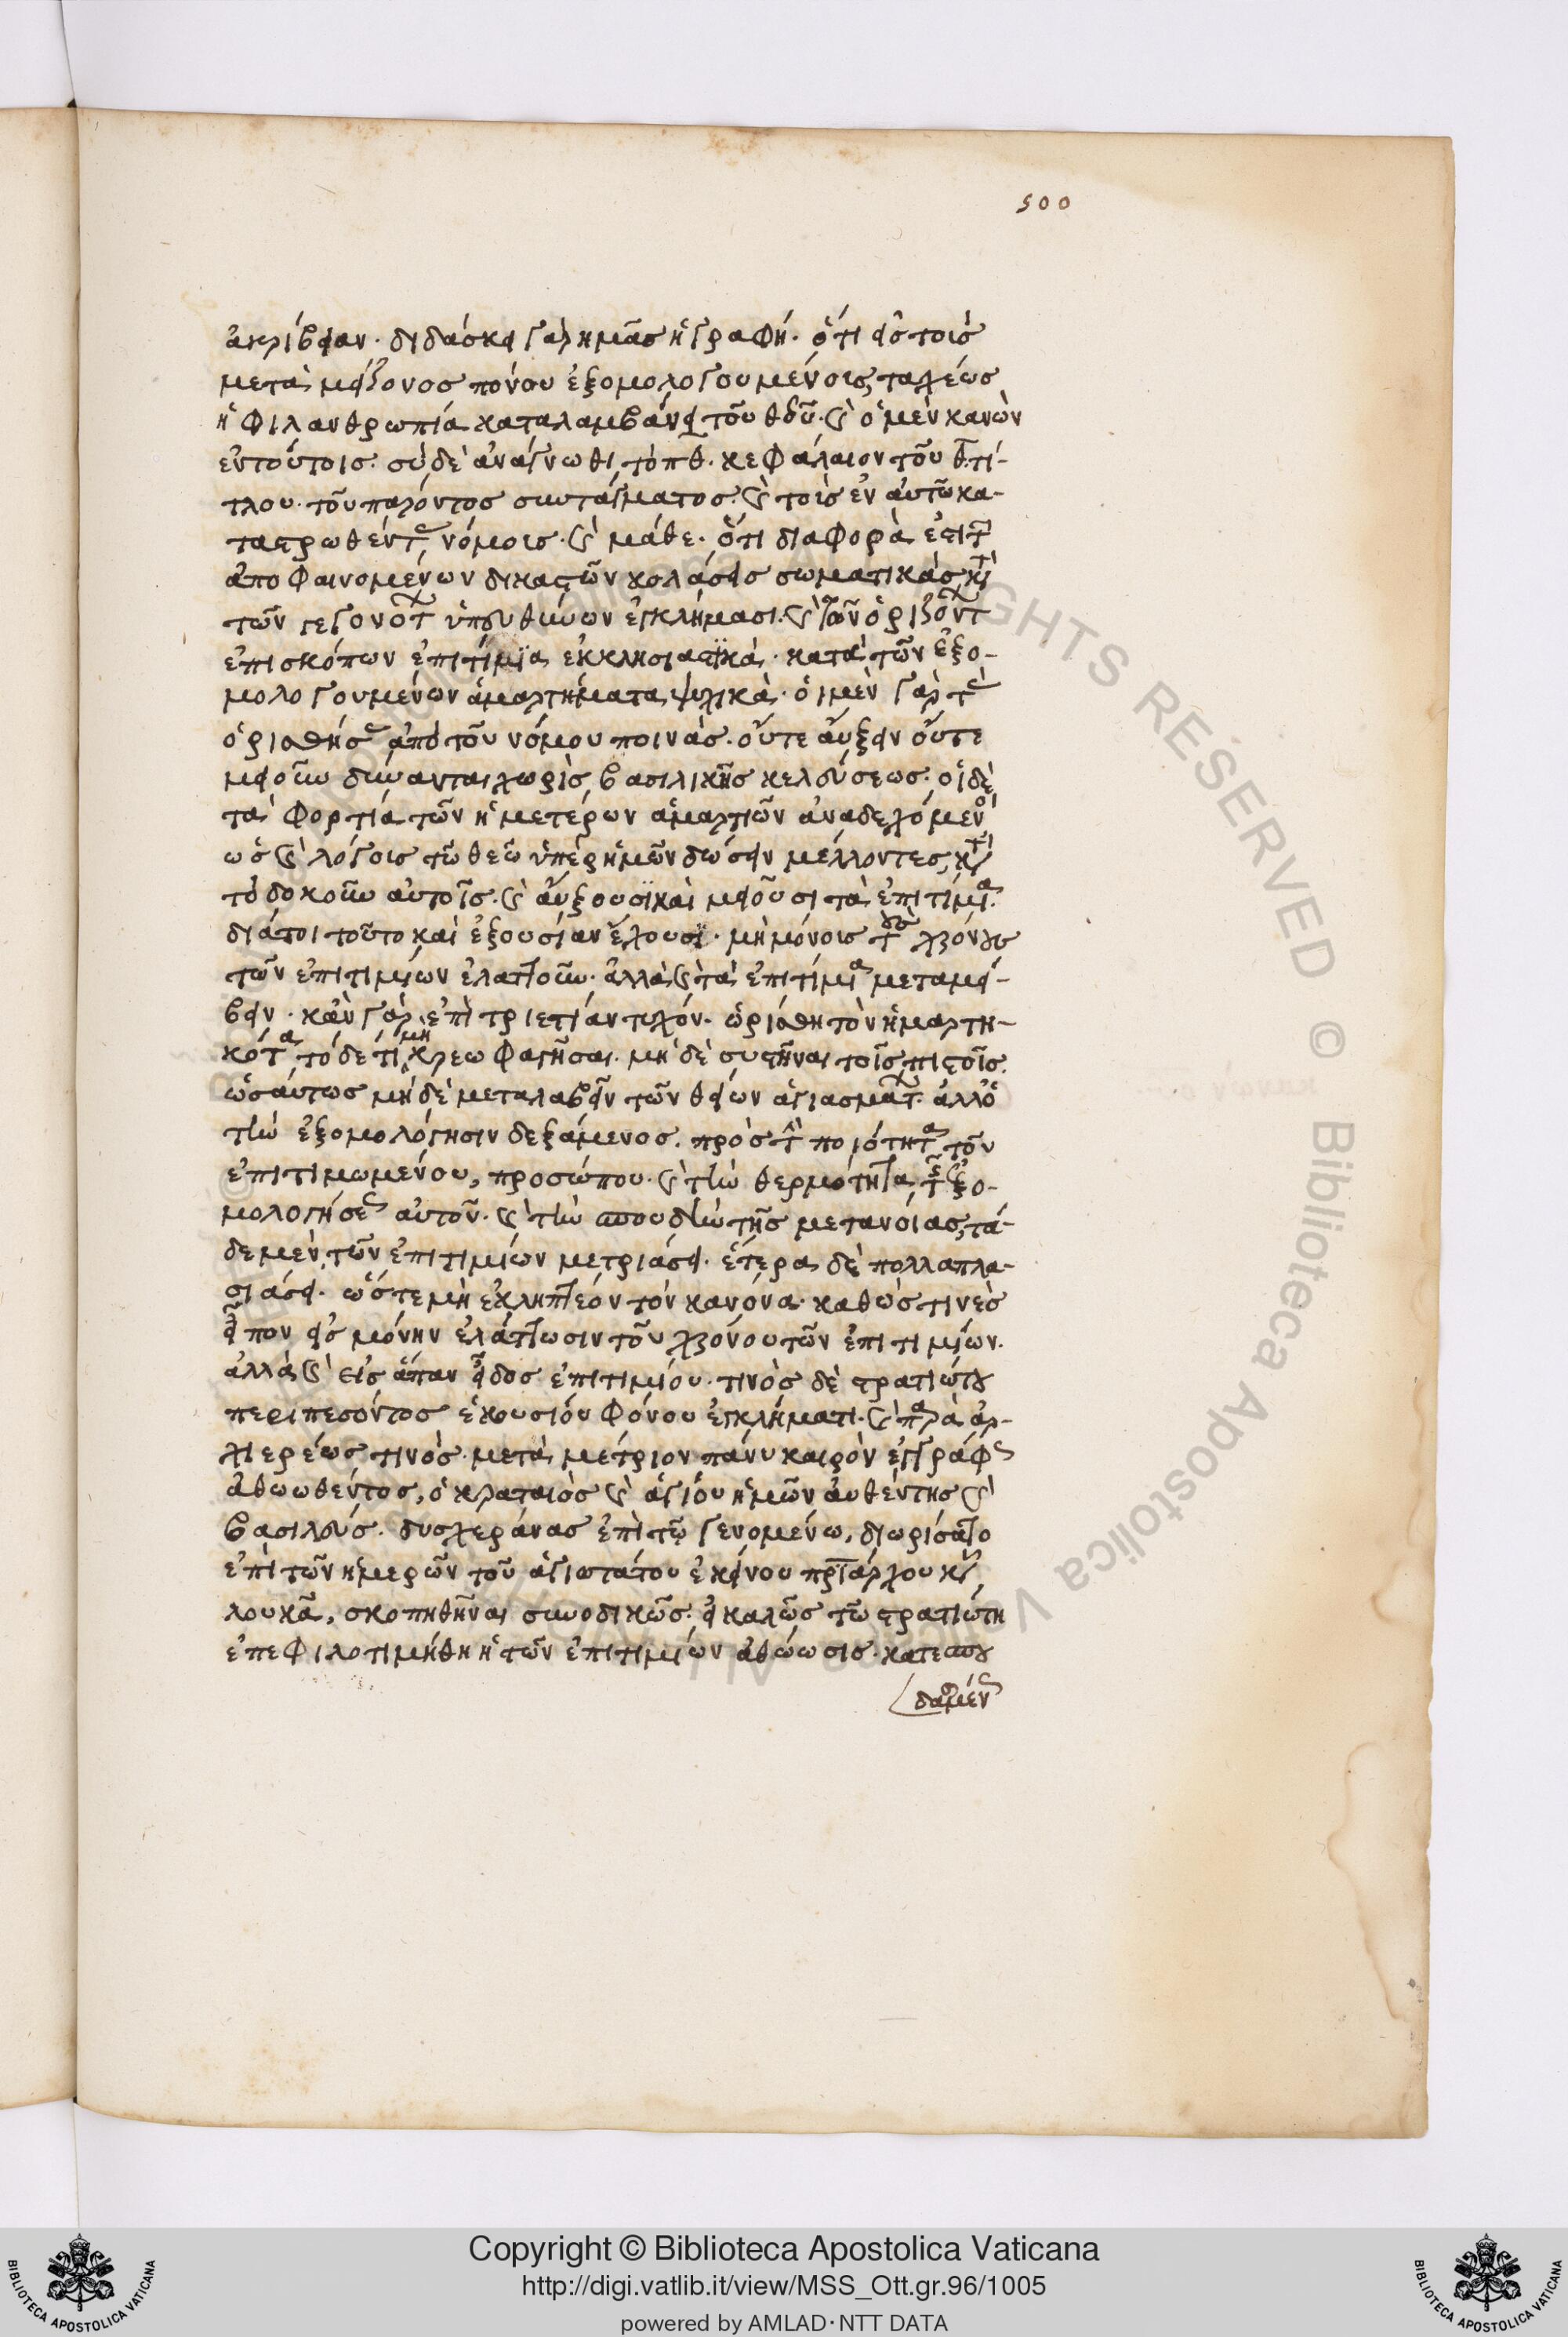 500
ἀκρίβειαν· διδάσκει γὰρ ἡμᾶς ἡ γραφή· ὅτι εἰς τοῖς
μετὰ μείζονος πόνου ἐξομολογουμένοις, ταχέως
ἡ φιλανθρωπία καταλαμβάνει τοῦ θεοῦ· καὶ ὁ μὲν κανὼν
ἐν τούτοις· σὺ δὲ ἀνάγνωθι τὸ πθ· κεφάλαιον τοῦ θ τί-
τλου· τοῦ παρόντος συντάγματος· καὶ τοῖς ἐν αὐτῷ κα-
ταστρωθέντας νόμοις· καὶ μάθε· ὅτι διαφορά ἐστι τῶν
ἀποφαινομένων δικαστῶν κολάσεις σωματικάς, κατὰ
τῶν γεγονότων ὑπευθύνων ἐγκλήμασι· καὶ τῶν ὁριζόντων
ἐπισκόπων ἐπιτίμια ἐκκλησιαστικά· κατὰ τῶν ἐξο-
μολογουμένων ἁμαρτήματα ψυχικά· οἱ μὲν γὰρ τὰς
ὁρισθήσας ἀπὸ τοῦ νόμου ποινάς· οὔτε αὔξειν οὔτε
μειοῦν δύνανται χωρὶς βασιλικῆς κελεύσεως· οἱ δὲ
τὰ φορτία τῶν ἡμετέρων ἁμαρτιῶν ἀναδεχόμενοι
ὡς καὶ λόγοις τῷ θεῷ ὑπὲρ ἡμῶν δώσειν μέλλοντες, κατὰ
τὸ δοκοῦν αὐτοῖς· καὶ αὔξουσι καὶ μειοῦσι τὰ ἐπιτίμια·
διά τοι τοῦτο καὶ ἐξουσίαν ἔχουσι· μὴ μόνοις τοὺς χρόνους
τῶν ἐπιτιμίων ἐλαττοῦν· ἀλλὰ καὶ τὰ ἐπιτίμια μεταμεί-
βειν· κἂν γὰρ ἐπὶ τριετίαν τυχόν· ὡρίσθη τὸν ἡμαρτη-
κότα τόδε τι μὴ κρέω φαγῆσαι· μὴ δὲ συστῆναι τοῖς πιστοῖς·
ὡσαύτως μὴ δὲ μεταλαβεῖν τῶν θείων ἁγιασμάτων· ἀλλ' ὁ
τὴν ἐξομολόγησιν δεξάμενος· πρὸς τὴν ποιότητα τοῦ
ἐπιτιμωμένου, προσώπου· καὶ τὴν θερμότητα τῆς ἐξο-
μολογήσεως αὐτοῦ· καὶ τὴν σπουδὴν τῆς μετανοίας, τά-
δε μὲν τῶν ἐπιτιμίων μετριάσει· ἕτερα δὲ πολλαπλα-
σιάσει· ὥστε μὴ ἐκληπτέον τὸν κανόνα· καθώς τινες
εἶπον εἰς μόνην ἐλάττωσιν τοῦ χρόνου τῶν ἐπιτιμίων·
ἀλλὰ καὶ εἰς ἅπαν εἶδος ἐπιτιμίου· τινὸς δὲ στρατιώτου
περιπεσόντος ἑκουσίου φόνου ἐγκλήματι· καὶ παρὰ ἀρ-
χιερέως τινός· μετὰ μέτριον πάνυ καιρὸν ἐγγράφως
ἀθωωθέντος, ὁ κραταιὸς καὶ ἁγίου ἡμῶν αὐθέντης καὶ
βασιλεύς· δυσχεράνας ἐπὶ τῷ γενομένῳ, διωρίσατο
ἐπὶ τῶν ἡμερῶν τοῦ ἁγιωτάτου ἐκείνου πριάρχου κυροῦ
λουκᾶ, σκοπηθῆναι συνοδικῶς· εἰ καλῶς τῷ στρατιώτῃ
ἐπεφιλοτιμήθη ἡ τῶν ἐπιτιμίων ἀθώωσις· κατεσπου
δασμένως
Copyright © Biblioteca Apostolica Vaticana
http://digi.vatlib.it/view/MSS_Ott.gr.96/1005
powered by AMLAD·NTT DATA